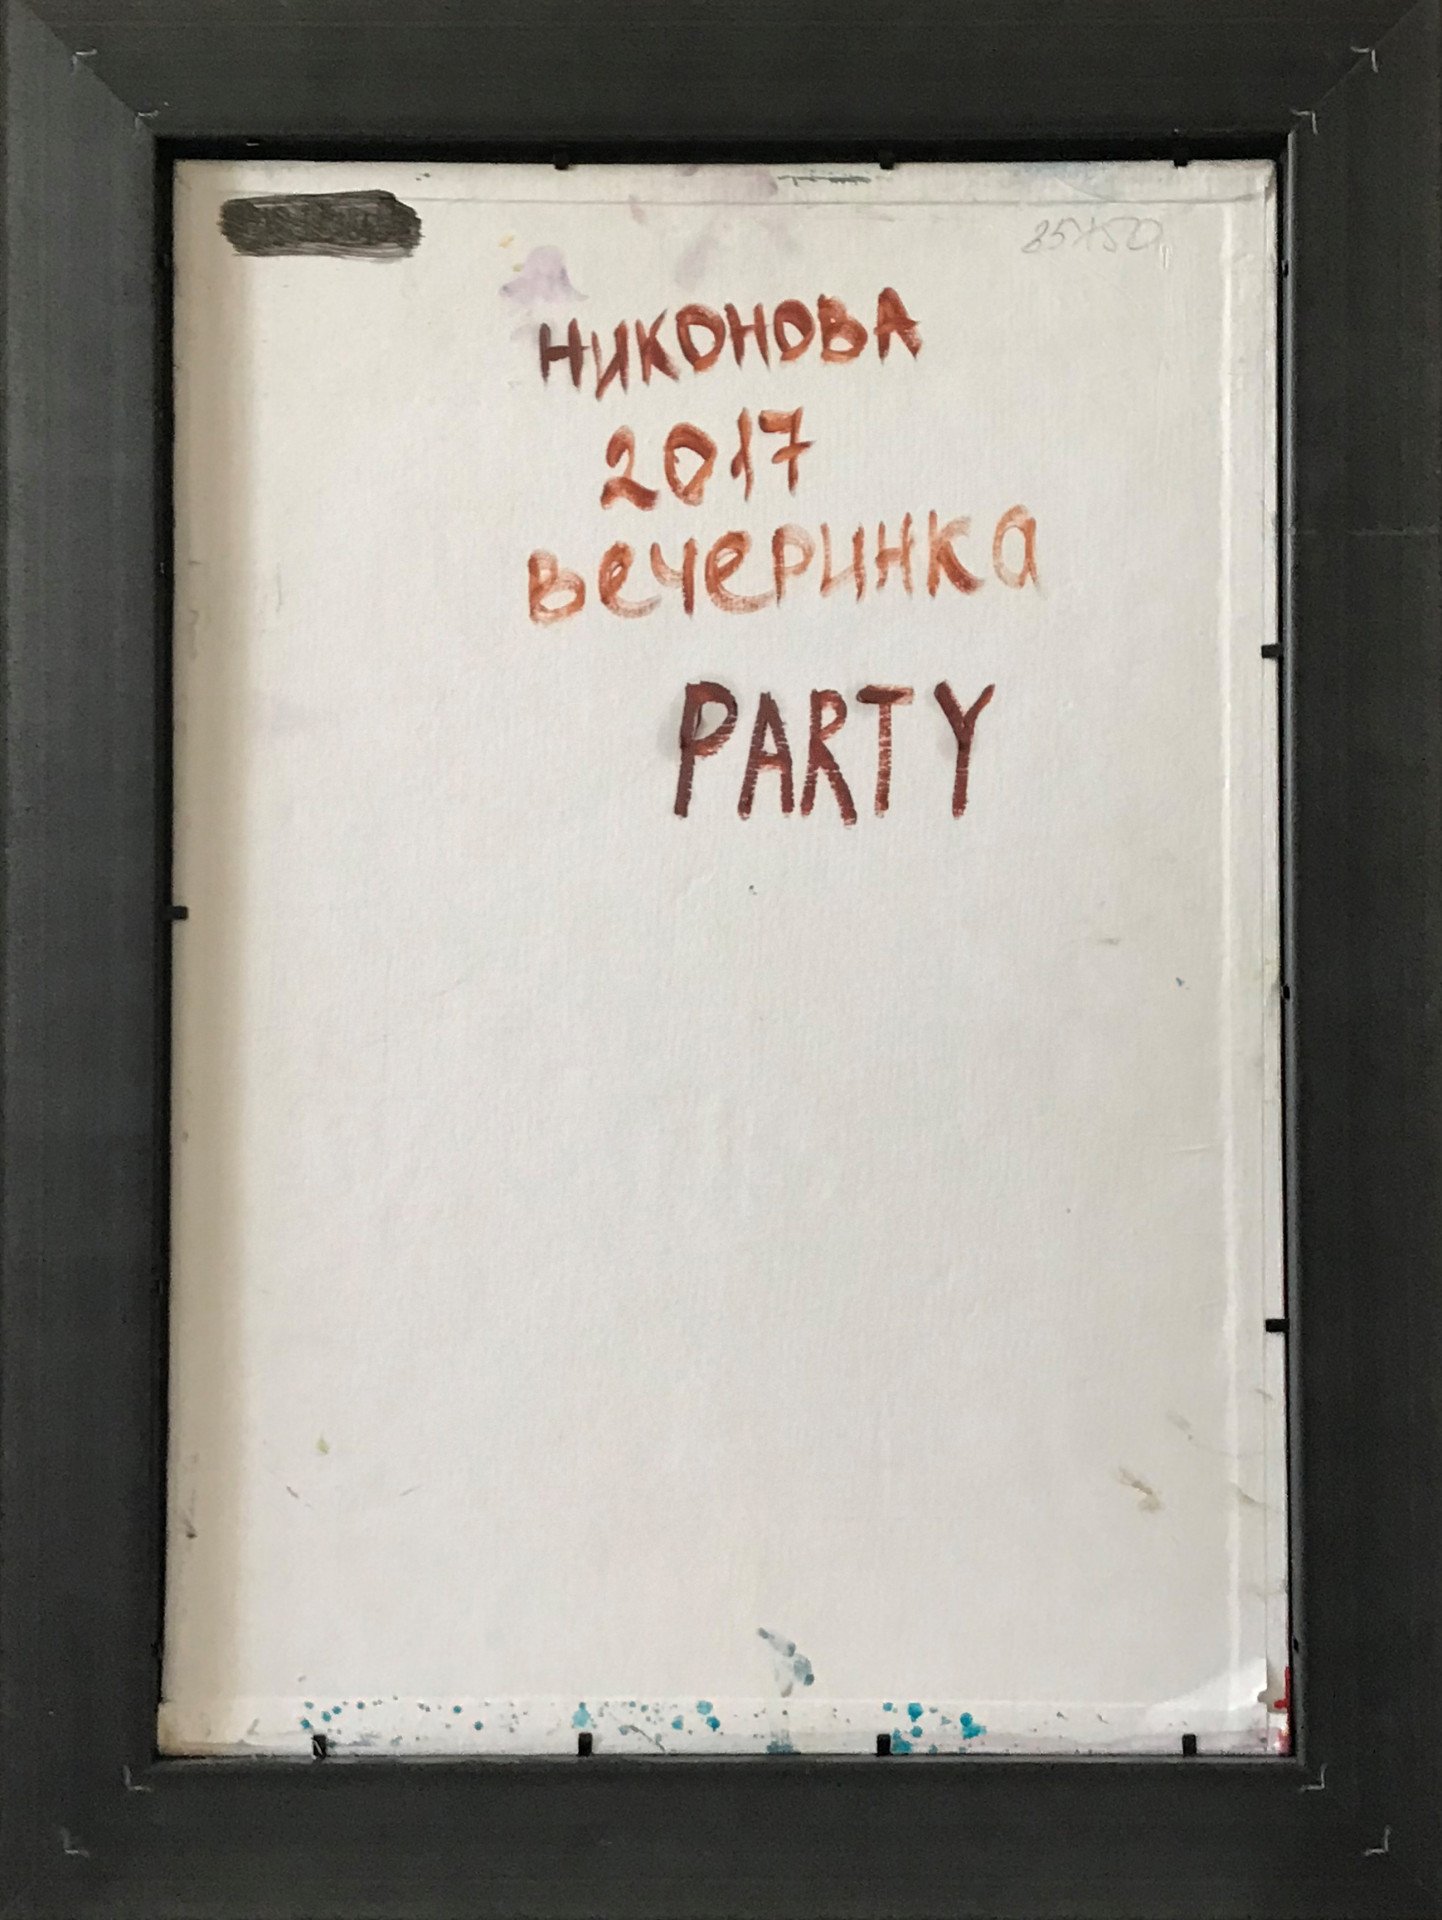 35x50
НИКОНОВА
2017
вечеринка
PARTY